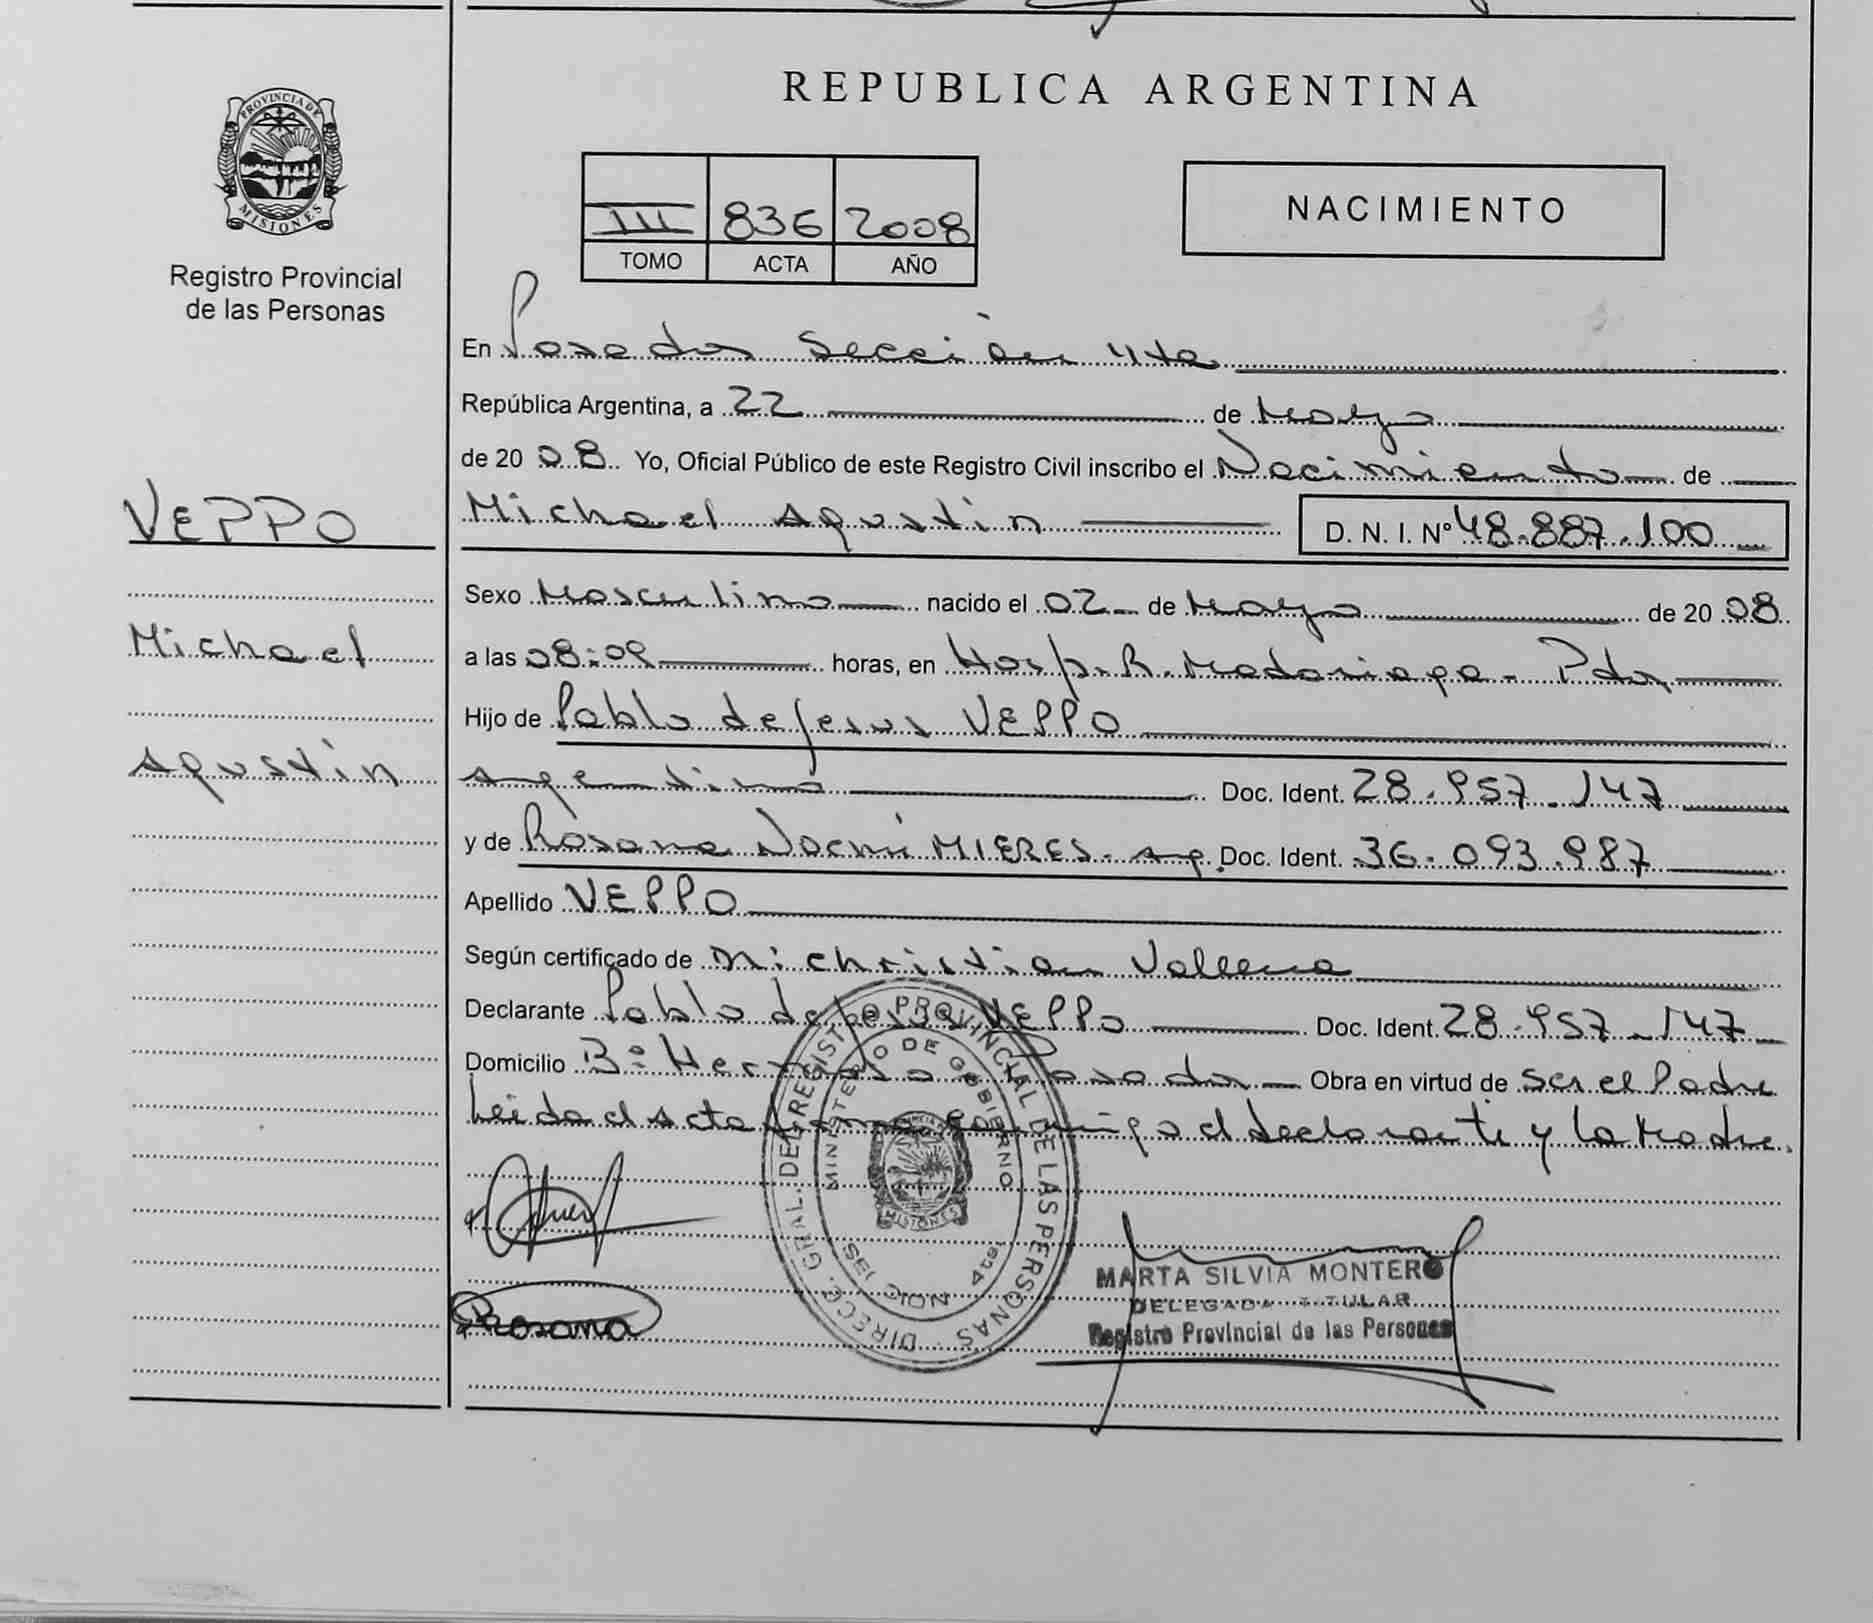 REPUBLICA ARGENTINA
PROVINCIA DE
MISIONES
Registro Provincial
de las Personas
III 836 2008
TOMO ACTA AÑO
NACIMIENTO
En Posadas Sección 4ta
República Argentina, a 22 de Mayo
de 2008 Yo, Oficial Público de este Registro Civil inscribo el Nacimiento de
VEPPO
Michael Agustin D. N. I. Nº 48.887.100
Sexo Masculino nacido el 02 de Mayo de 2008
Michael
a las 08:09 horas, en Hosp. R. Madariaga - Pdas
Hijo de Pablo de Jesus VEPPO
Agustin
Argentino Doc. Ident. 28.957.147
y de Rosana Noemi MIERES - Arg. Doc. Ident. 36.093.987
Apellido VEPPO
Según certificado de Christian
Declarante Pablo de Jesus VEPPO Doc. Ident. 28.957.147
Domicilio Bº Hermoso - Posadas Obra en virtud de ser el Padre
Leida el Acta firma conmigo el declarante y la Madre.
DIRECC. GRAL. DEL REGISTRO PROVINCIAL DE LAS PERSONAS
MINISTERIO DE GOBIERNO
MISIONES
SECCION 4ta.
MARTA SILVIA MONTERO
DELEGADA TITULAR
Registro Provincial de las Personas
Rosana